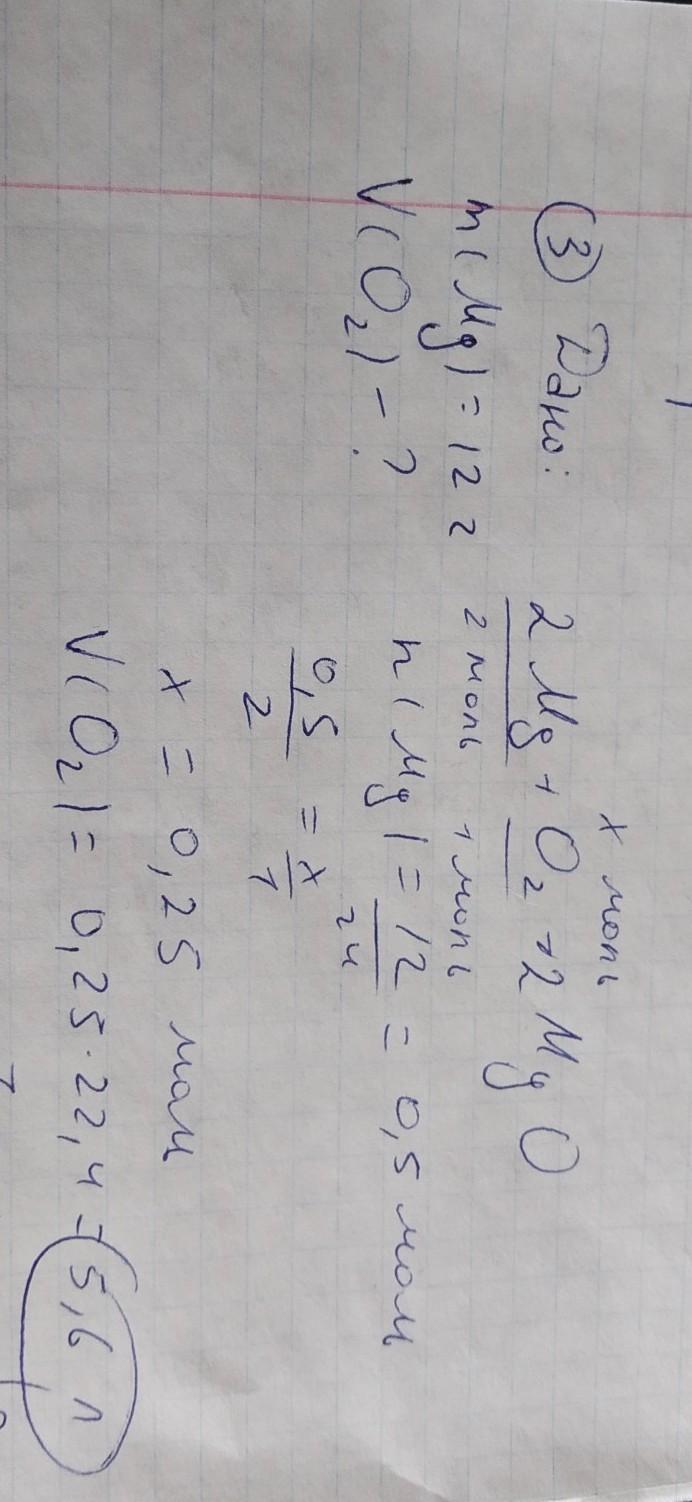 ③ Дано:
m(Mg) = 12 г
V(O₂) - ?
x моль
2Mg + O₂ → 2MgO
2 моль 1 моль
n(Mg) = 12/24 = 0,5 моль
0,5/2 = x/1
x = 0,25 моль
V(O₂) = 0,25·22,4 = 5,6 л